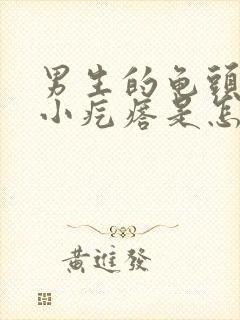 男生的龟頭
小疙瘩是怎
黄進發